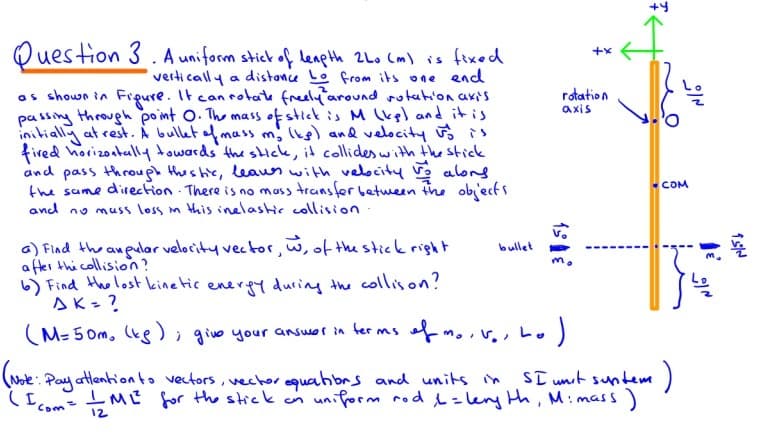 Question 3. A uniform stick of length 2L₀ (m) is fixed
vertically a distance L₀/2 from its one end
as shown in Figure. It can rotate freely around rotation axis
passing through point O. The mass of stick is M (kg) and it is
initially at rest. A bullet of mass m₀ (kg) and velocity v₀ is
fired horizontally towards the stick, it collides with the stick
and pass through the stic, leaves with velocity v₀/2 along
the same direction. There is no mass transfer between the objects
and no mass loss in this inelastic collision.
a) Find the angular velocity vector, w, of the stick right
after the collision?
b) Find the lost kinetic energy during the collison?
ΔK = ?
(M=50m₀ (kg) ; give your answer in terms of m₀, v₀, L₀)
(Note: Pay attention to vectors, vector equations and units in SI unit system)
(I com = 1/12 ML² for the stick or uniform rod L = length, M: mass)
+y
+x
L₀/2
rotation
axis
O
COM
v₀
bullet
m₀
v₀/2
m₀
L₀/2